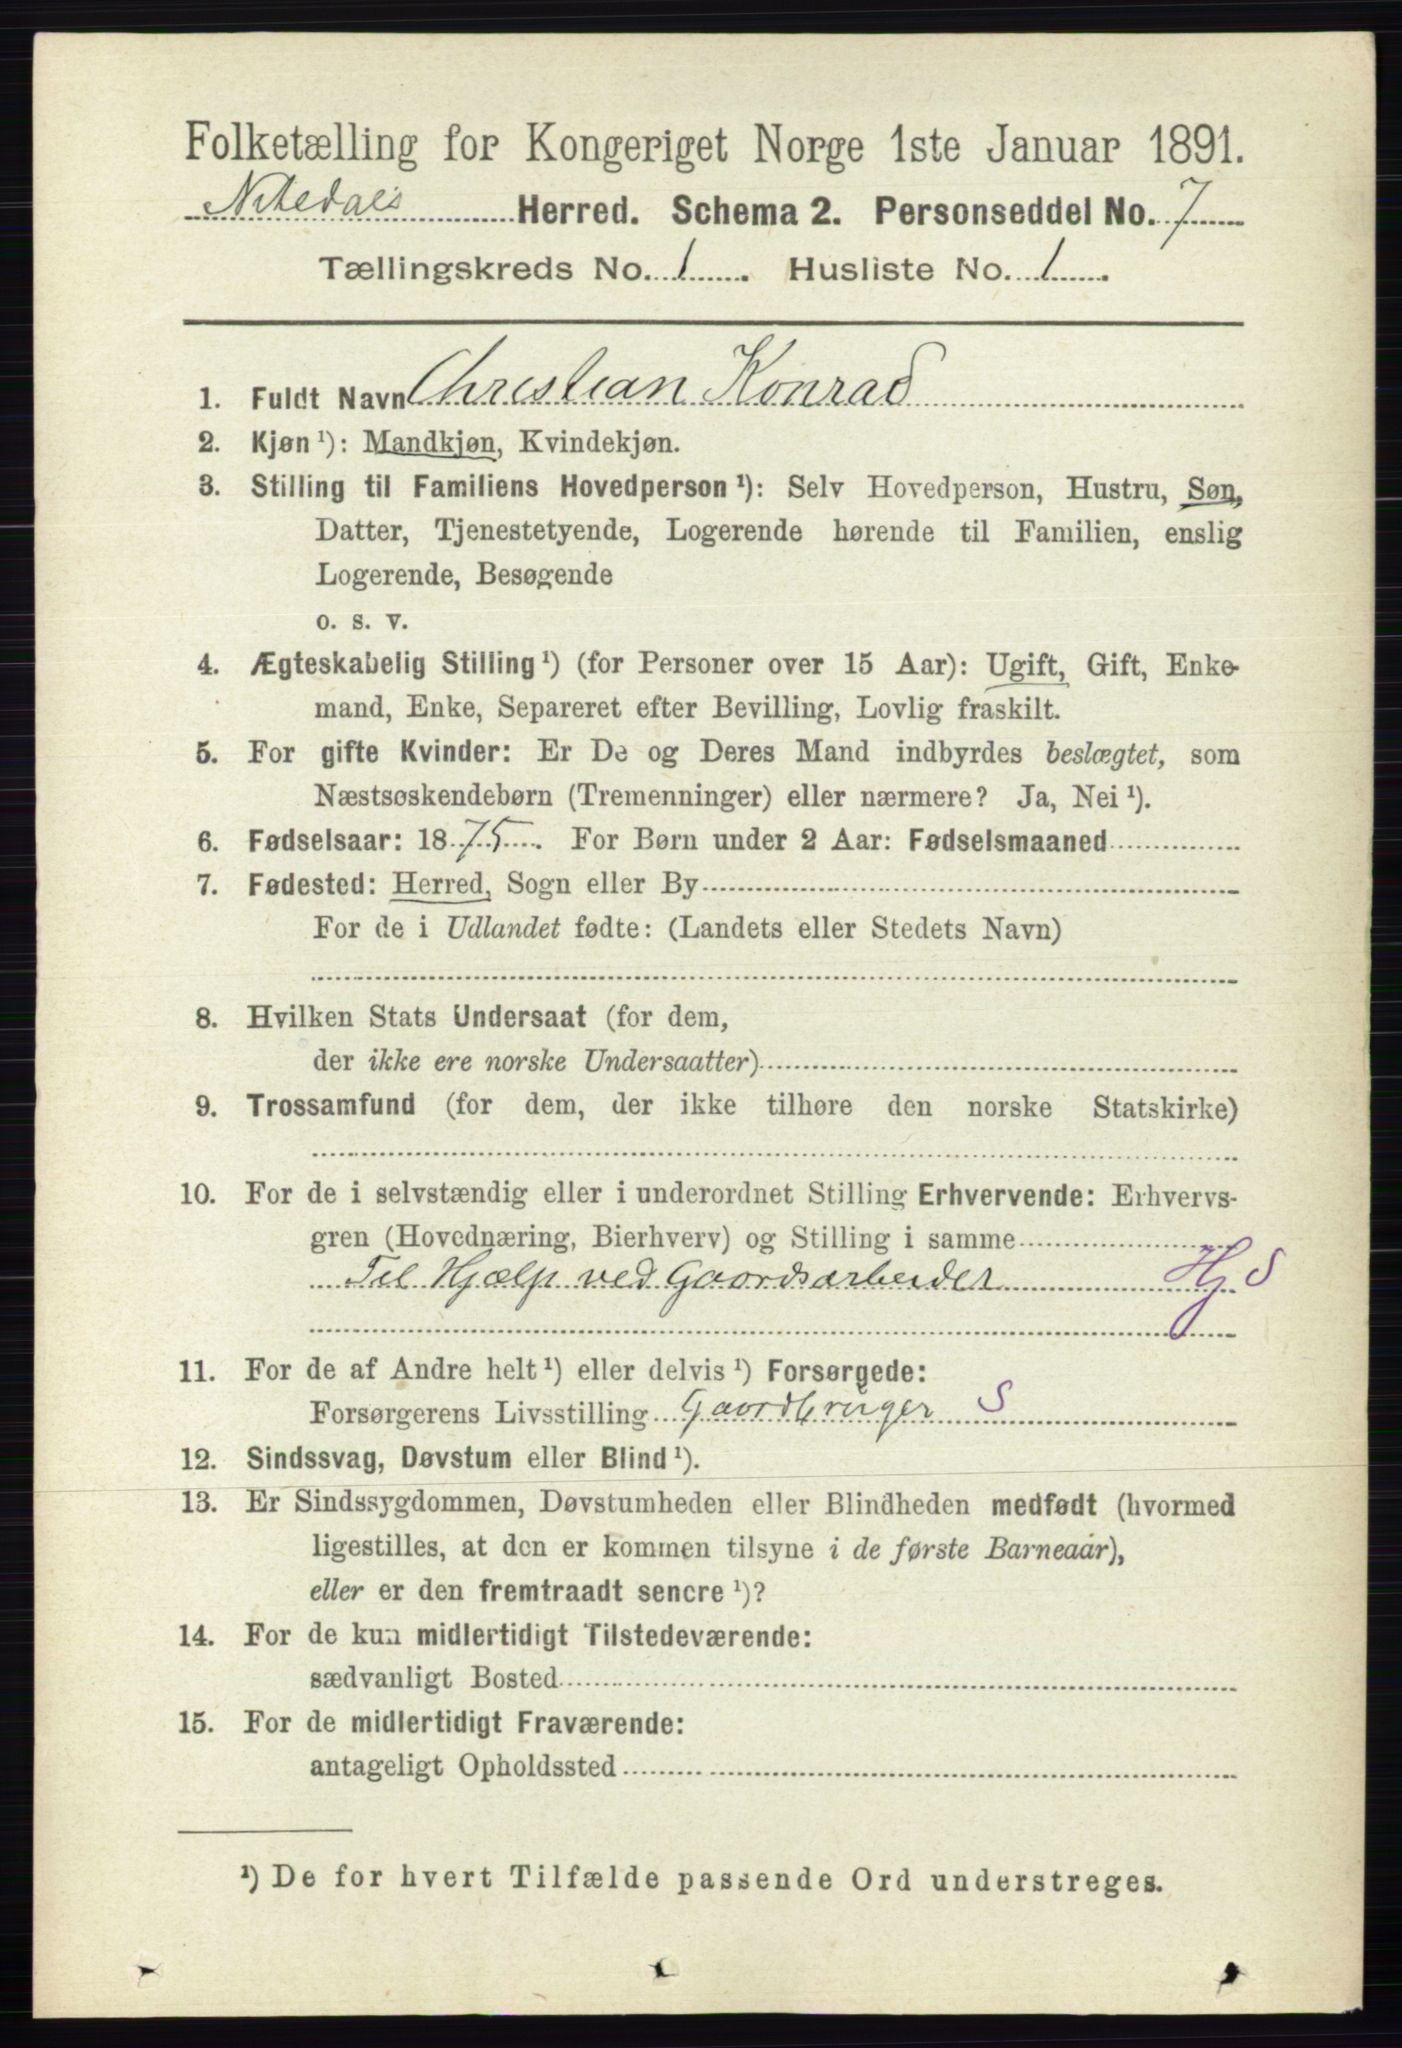 Folketælling for Kongeriget Norge 1ste Januar 1891.
Nitedals Herred. Schema 2. Personseddel No. 7
Tællingskreds No. 1. Husliste No. 1.
1. Fuldt Navn Christian Konrad
2. Kjøn ¹): Mandkjøn, Kvindekjøn.
3. Stilling til Familiens Hovedperson ¹): Selv Hovedperson, Hustru, Søn,
Datter, Tjenestetyende, Logerende hørende til Familien, enslig
Logerende, Besøgende
o. s. v.
4. Ægteskabelig Stilling ¹) (for Personer over 15 Aar): Ugift, Gift, Enke-
mand, Enke, Separeret efter Bevilling, Lovlig fraskilt.
5. For gifte Kvinder: Er De og Deres Mand indbyrdes beslægtet, som
Næstsøskendebørn (Tremenninger) eller nærmere? Ja, Nei ¹).
6. Fødselsaar: 1875. For Børn under 2 Aar: Fødselsmaaned
7. Fødested: Herred, Sogn eller By
For de i Udlandet fødte: (Landets eller Stedets Navn)
8. Hvilken Stats Undersaat (for dem,
der ikke ere norske Undersaatter)
9. Trossamfund (for dem, der ikke tilhøre den norske Statskirke)
10. For de i selvstændig eller i underordnet Stilling Erhvervende: Erhvervs-
gren (Hovednæring, Bierhverv) og Stilling i samme
Til Hjælp ved Gaardsarbeider Hj S
11. For de af Andre helt ¹) eller delvis ¹) Forsørgede:
Forsørgerens Livsstilling Gaardbruger S
12. Sindssvag, Døvstum eller Blind ¹).
13. Er Sindssygdommen, Døvstumheden eller Blindheden medfødt (hvormed
ligestilles, at den er kommen tilsyne i de første Barneaar),
eller er den fremtraadt senere ¹)?
14. For de kun midlertidigt Tilstedeværende:
sædvanligt Bosted
15. For de midlertidigt Fraværende:
antageligt Opholdssted
¹) De for hvert Tilfælde passende Ord understreges.